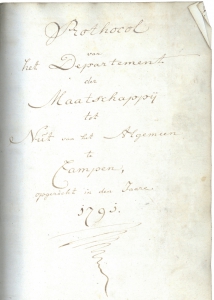 Prothocol
van
het Departement
der
Maatschappij
tot
Nut van het Algemeen
te
Campen,
opgericht in den Jaare
1791.